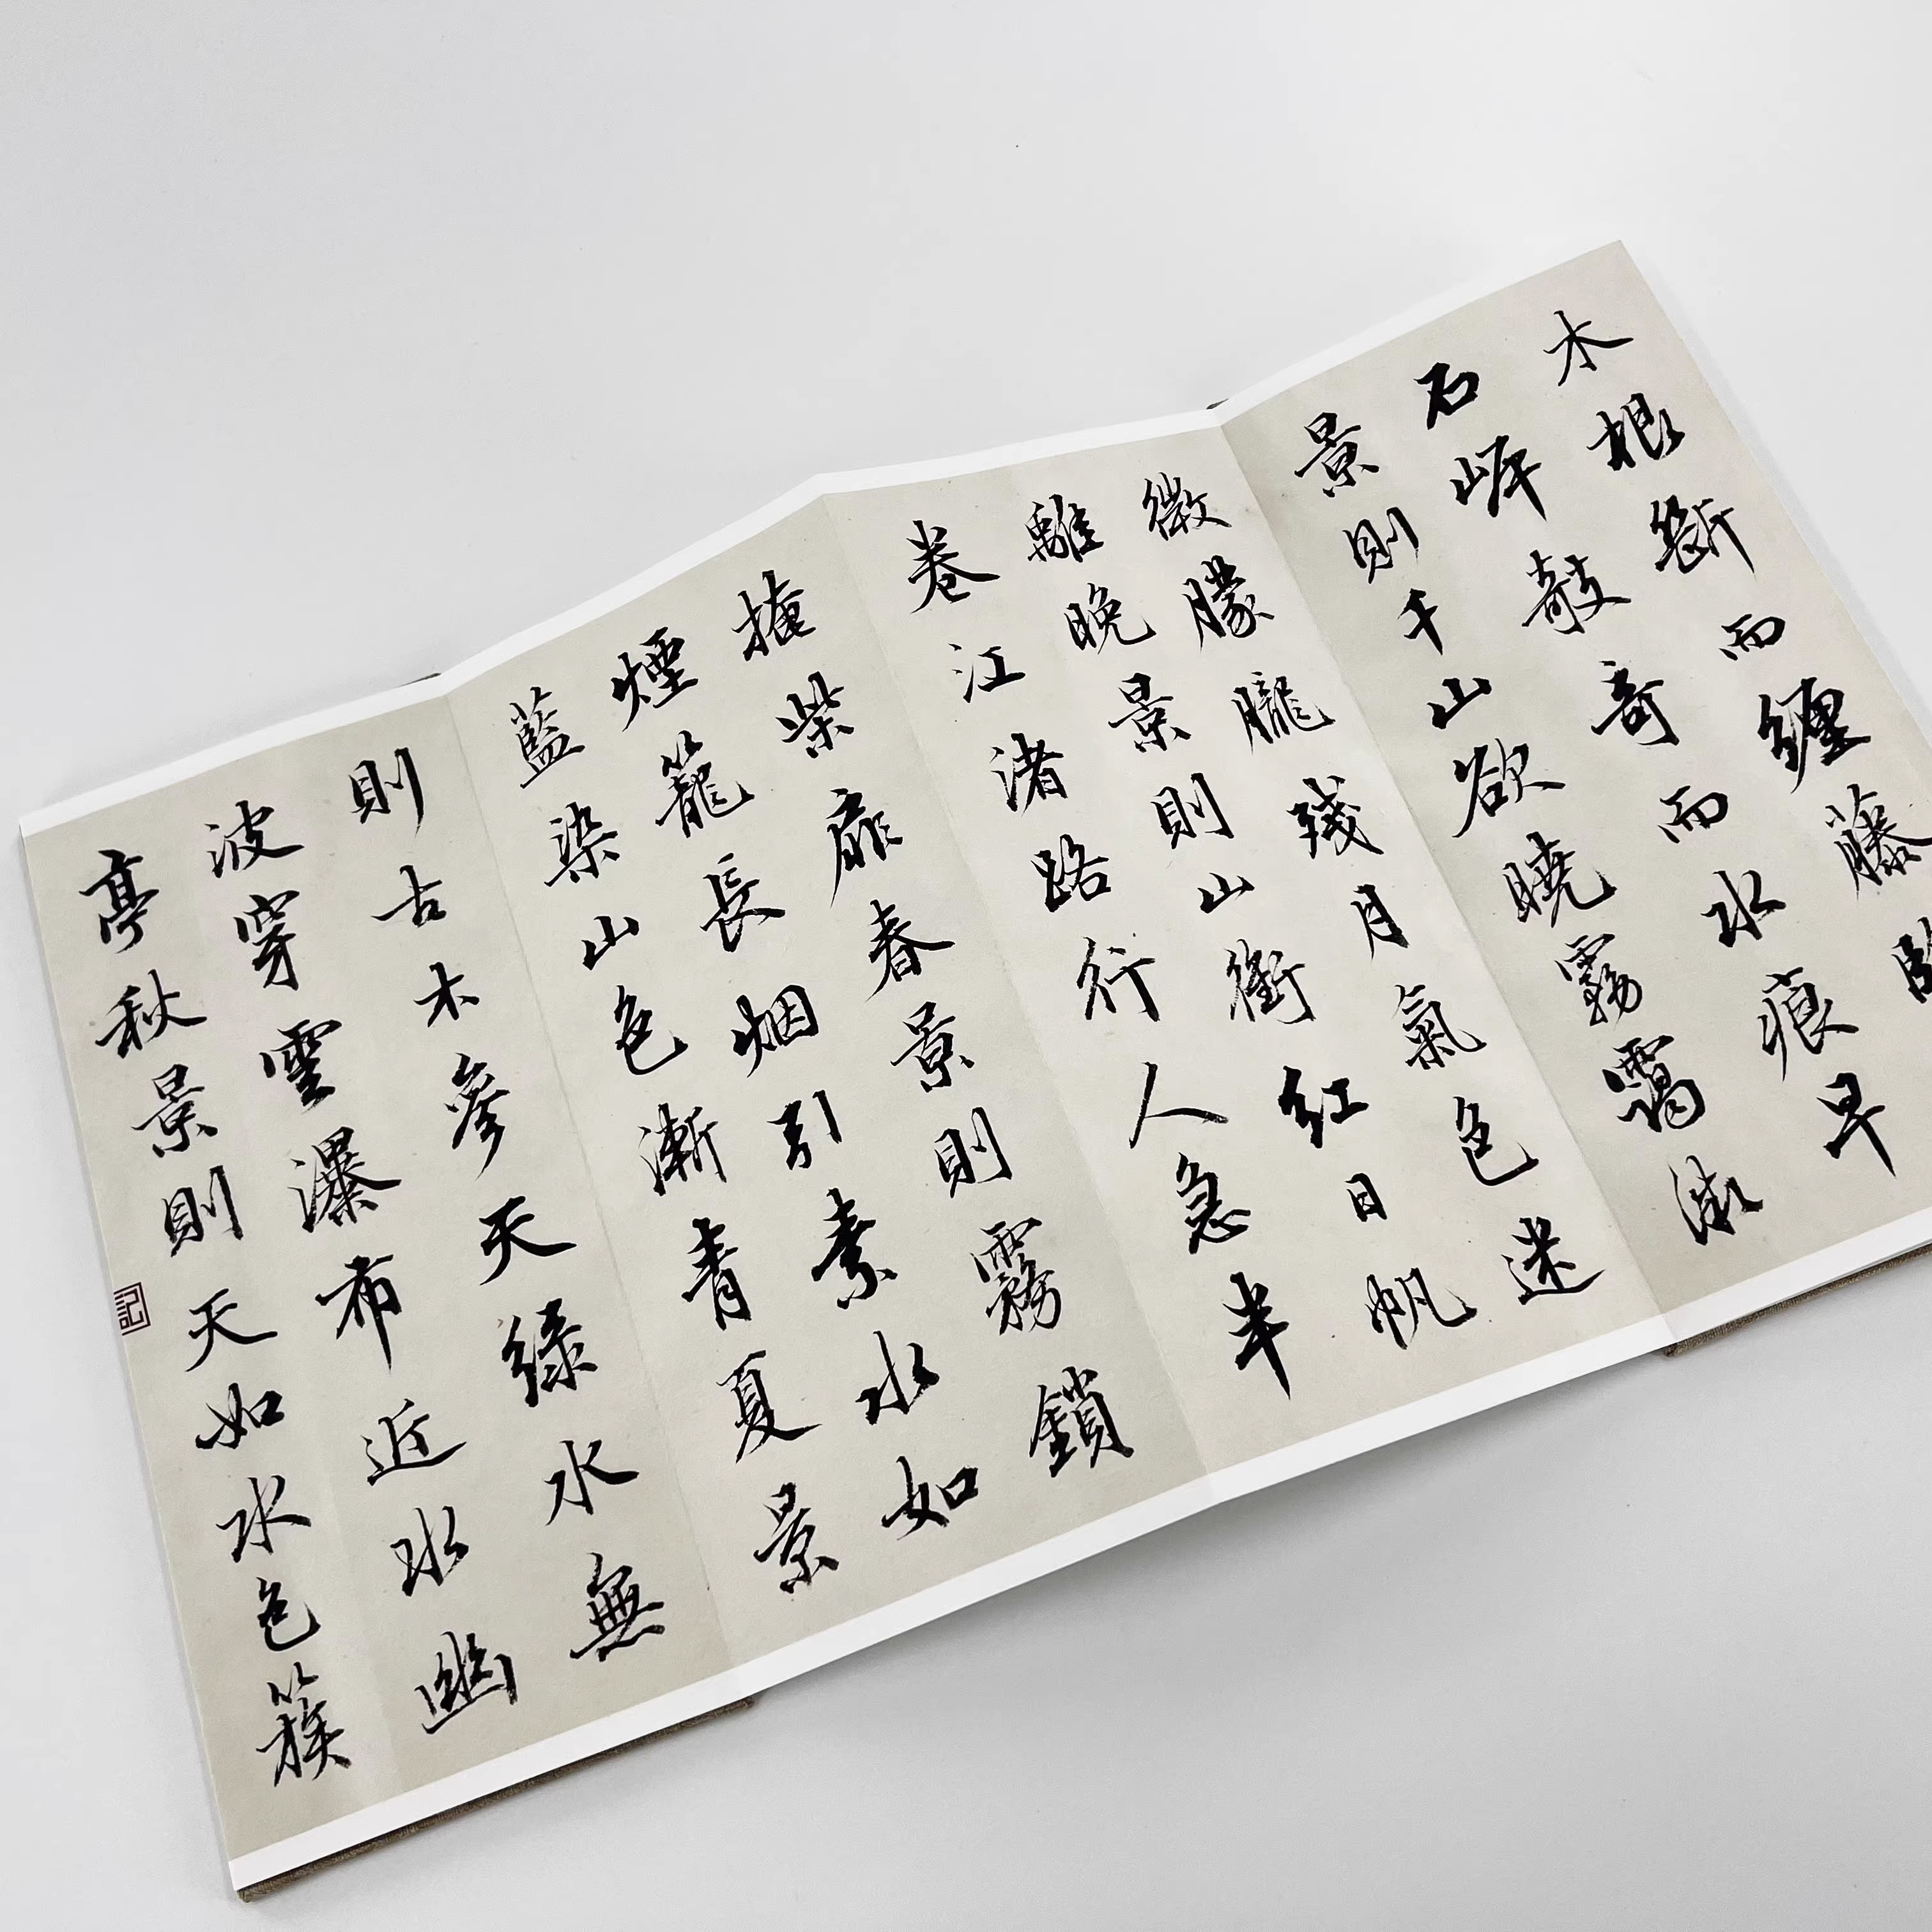 木根斷而纏藤
石岸攲奇而水痕早
景則千山欲曉霧靄微
微朦朧殘月氣色迷
離晚景則山銜紅日帆
卷江渚路行人急半
掩柴扉春景則霧鎖
煙籠長烟引素水如
藍染山色漸青夏景
則古木參天綠水無
波穿雲瀑布近水幽
亭秋景則天如水色簇
記